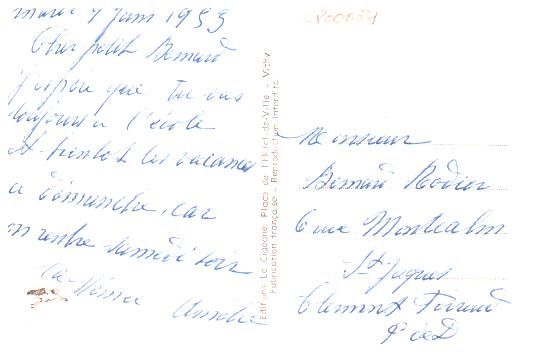 mardi 7 Janv 1953
Cher petit Bernard
J'espère que tu vas
toujours à l'école
et bientôt les vacances
à dimanche, car
on rentre samedi soir
Ta Mémée
Amélie
CP00031
Editions La Cigogne, Place de l'Hôtel-de-Ville - Vichy
Fabrication française - Reproduction interdite
Monsieur
Bernard Rodier
6 rue Montcalm
St Jacques
Clermont Ferrand
P de D